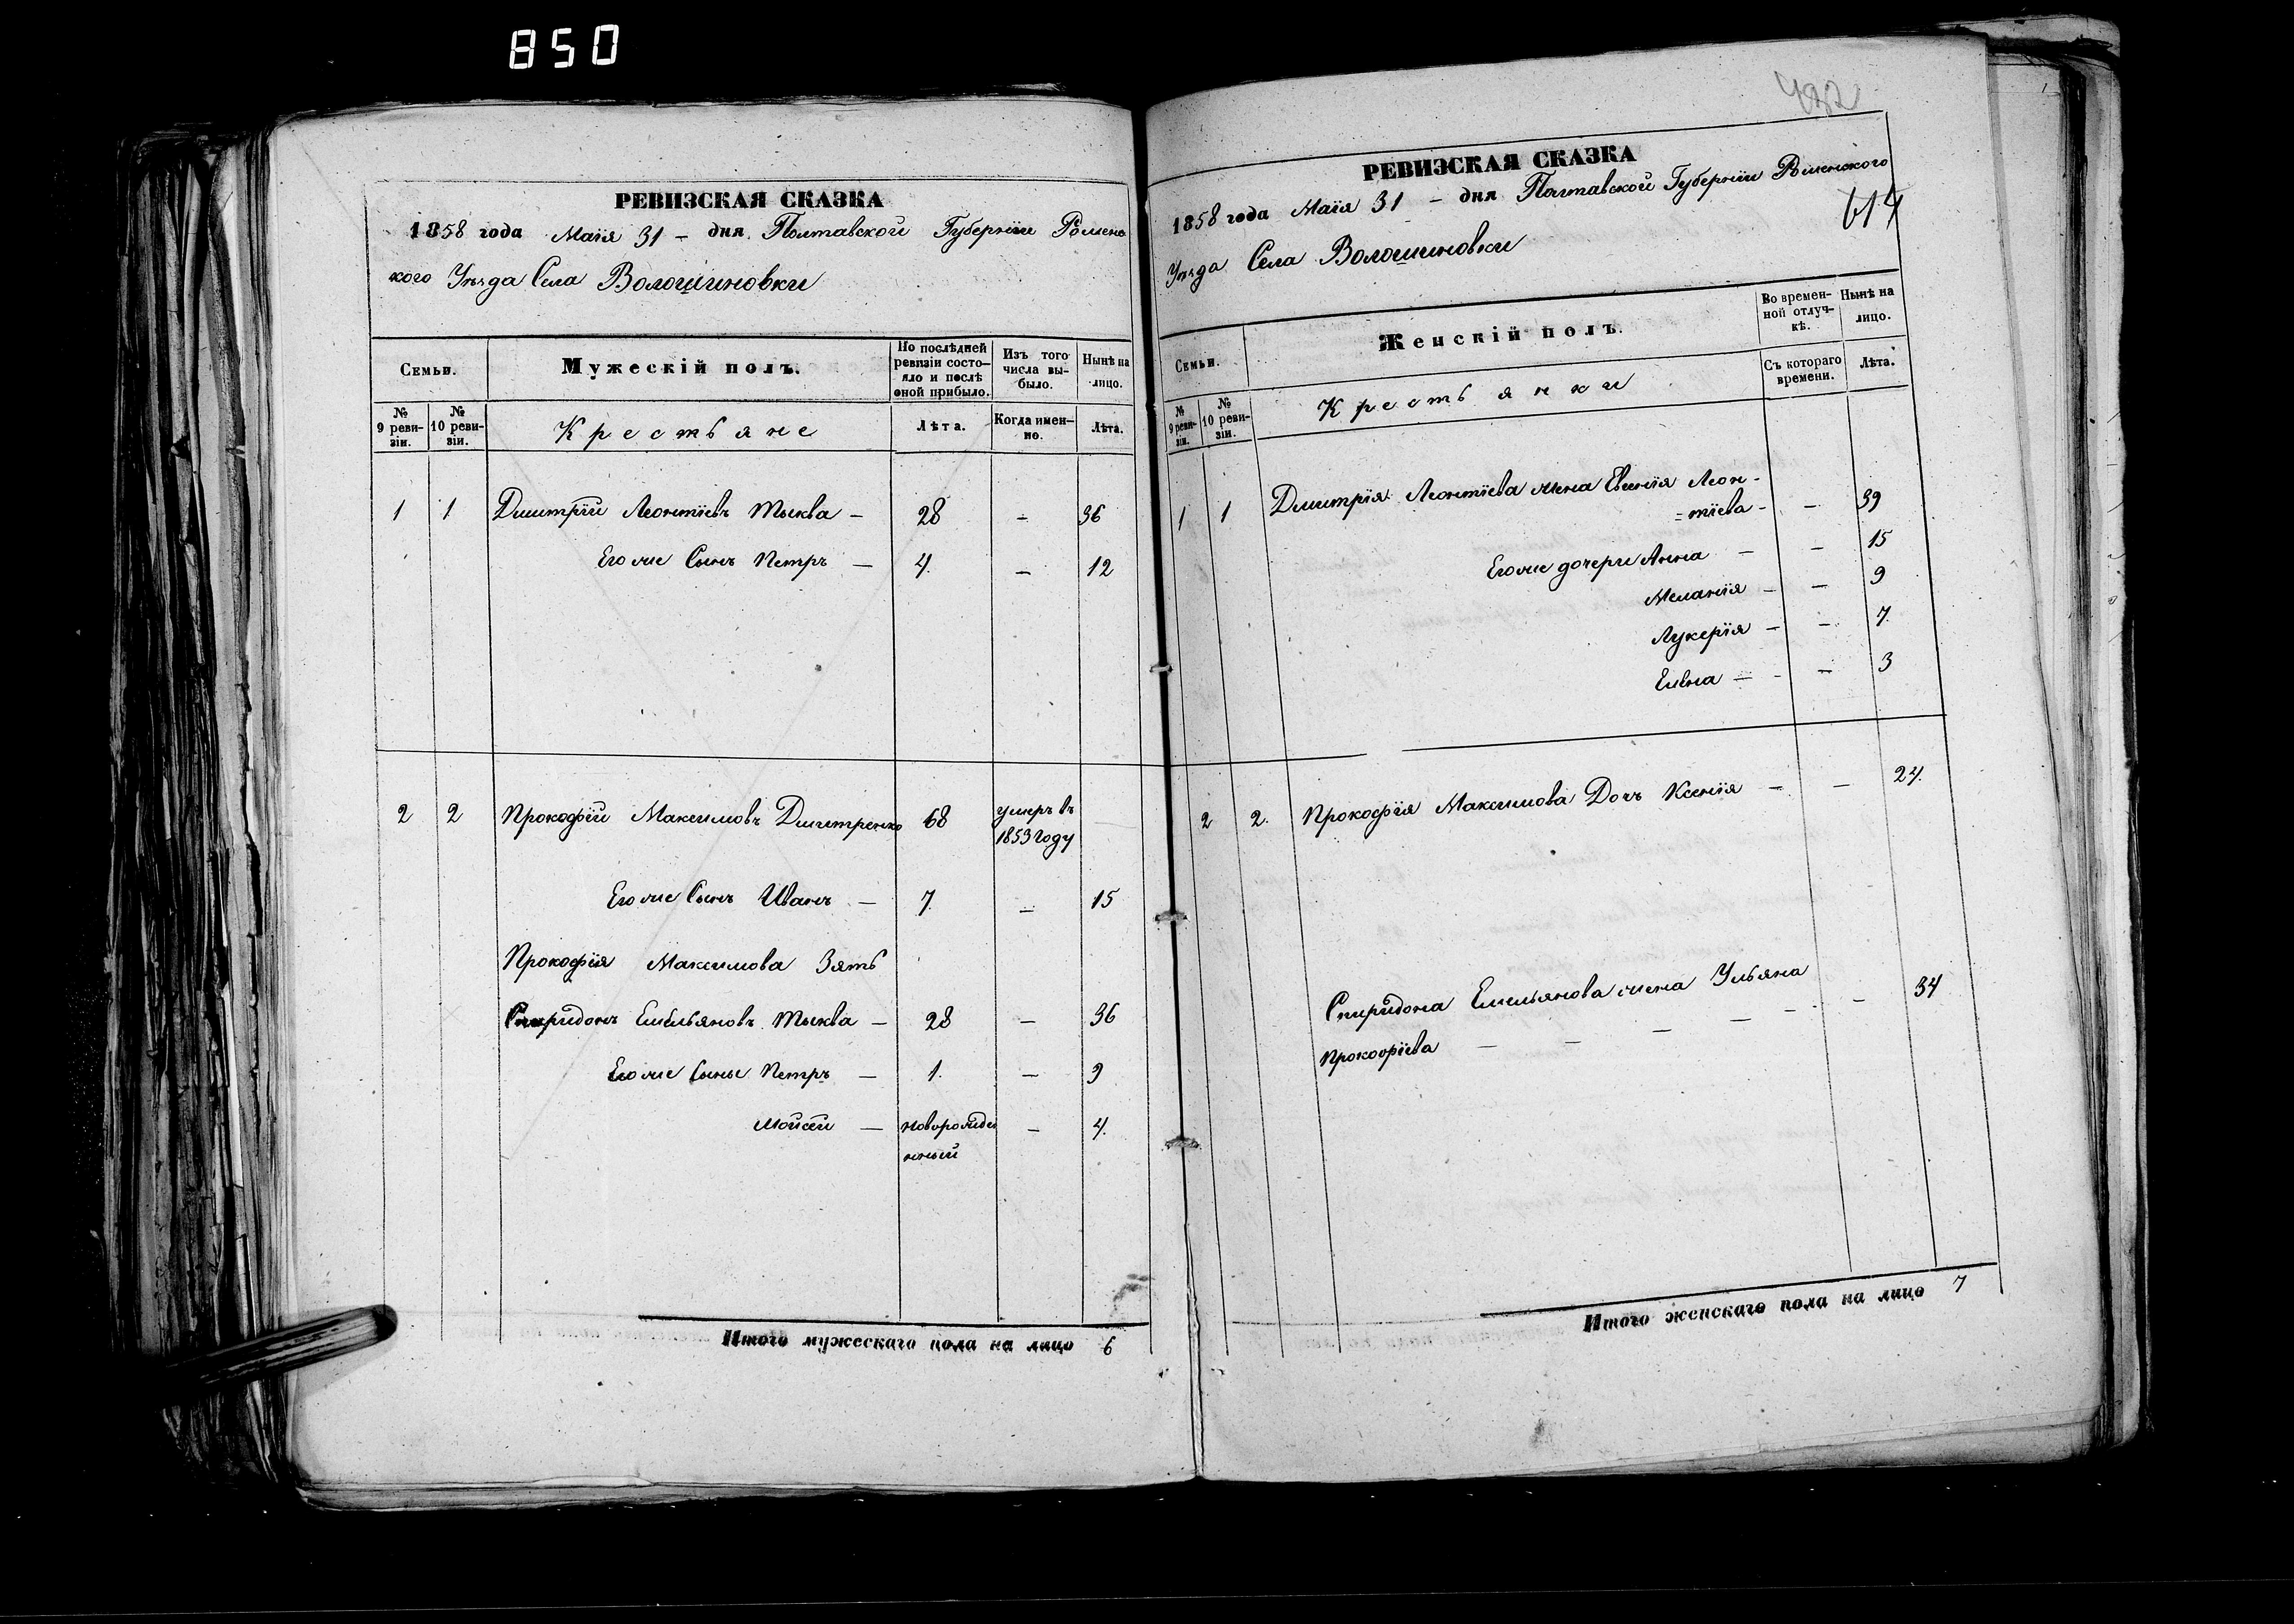 850
РЕВИЗСКАЯ СКАЗКА
1858 года Маія 31 – дня Полтавской Губерніи Роменс
кого Уѣзда Села Волошиновки
Семьи.
Мужескій полъ.
По послѣдней ревизіи состояло и послѣ оной прибыло.
Изъ того числа выбыло.
Нынѣ на лицо.
№ 9 ревизіи.
№ 10 ревизіи.
Крестьяне
Лѣта.
Когда именно.
Лѣта.
1 1 Дмитрій Леонтіевъ Тыква – 28 – 36
Его же Сынъ Петръ – 4. – 12
2 2 Прокофій Максимовъ Дмитренко 68 умеръ въ
1853 году
Его же Сынъ Иванъ – 7. – 15
Прокофія Максимова Зять
Спиридонъ Емельяновъ Тыква – 28 – 36
Его же Сынъ Петръ – 1. – 9
Мойсей – новорожде – 4.
нный
Итого мужескаго пола на лицо 6
432
РЕВИЗСКАЯ СКАЗКА
1858 года Маія 31 – дня Полтавской Губерніи Роменского
614
Уѣзда Села Волошиновки
Семьи.
Женскій полъ.
Во временной отлучкѣ.
Нынѣ на лицо.
№ 9 ревизіи.
№ 10 ревизіи.
Крестьянки
Съ котораго времени.
Лѣта.
1 1 Дмитрія Леонтіева жена Евгенія Леон-
=тіева – – 39
Его же дочери Анна – – 15
Меланія – – 9
Лукерія – – 7.
Елена – – 3
2 2. Прокофія Максимова Дочь Ксенія – – 24.
Спиридона Емельянова жена Ульяна
Прокофіева – – – – – – 34
Итого женскаго пола на лицо 7